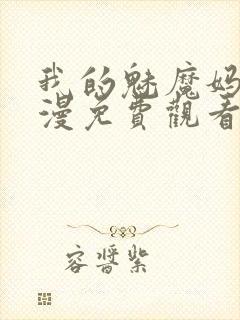 我的魅魔妈
漫免費觀看
容醬紫